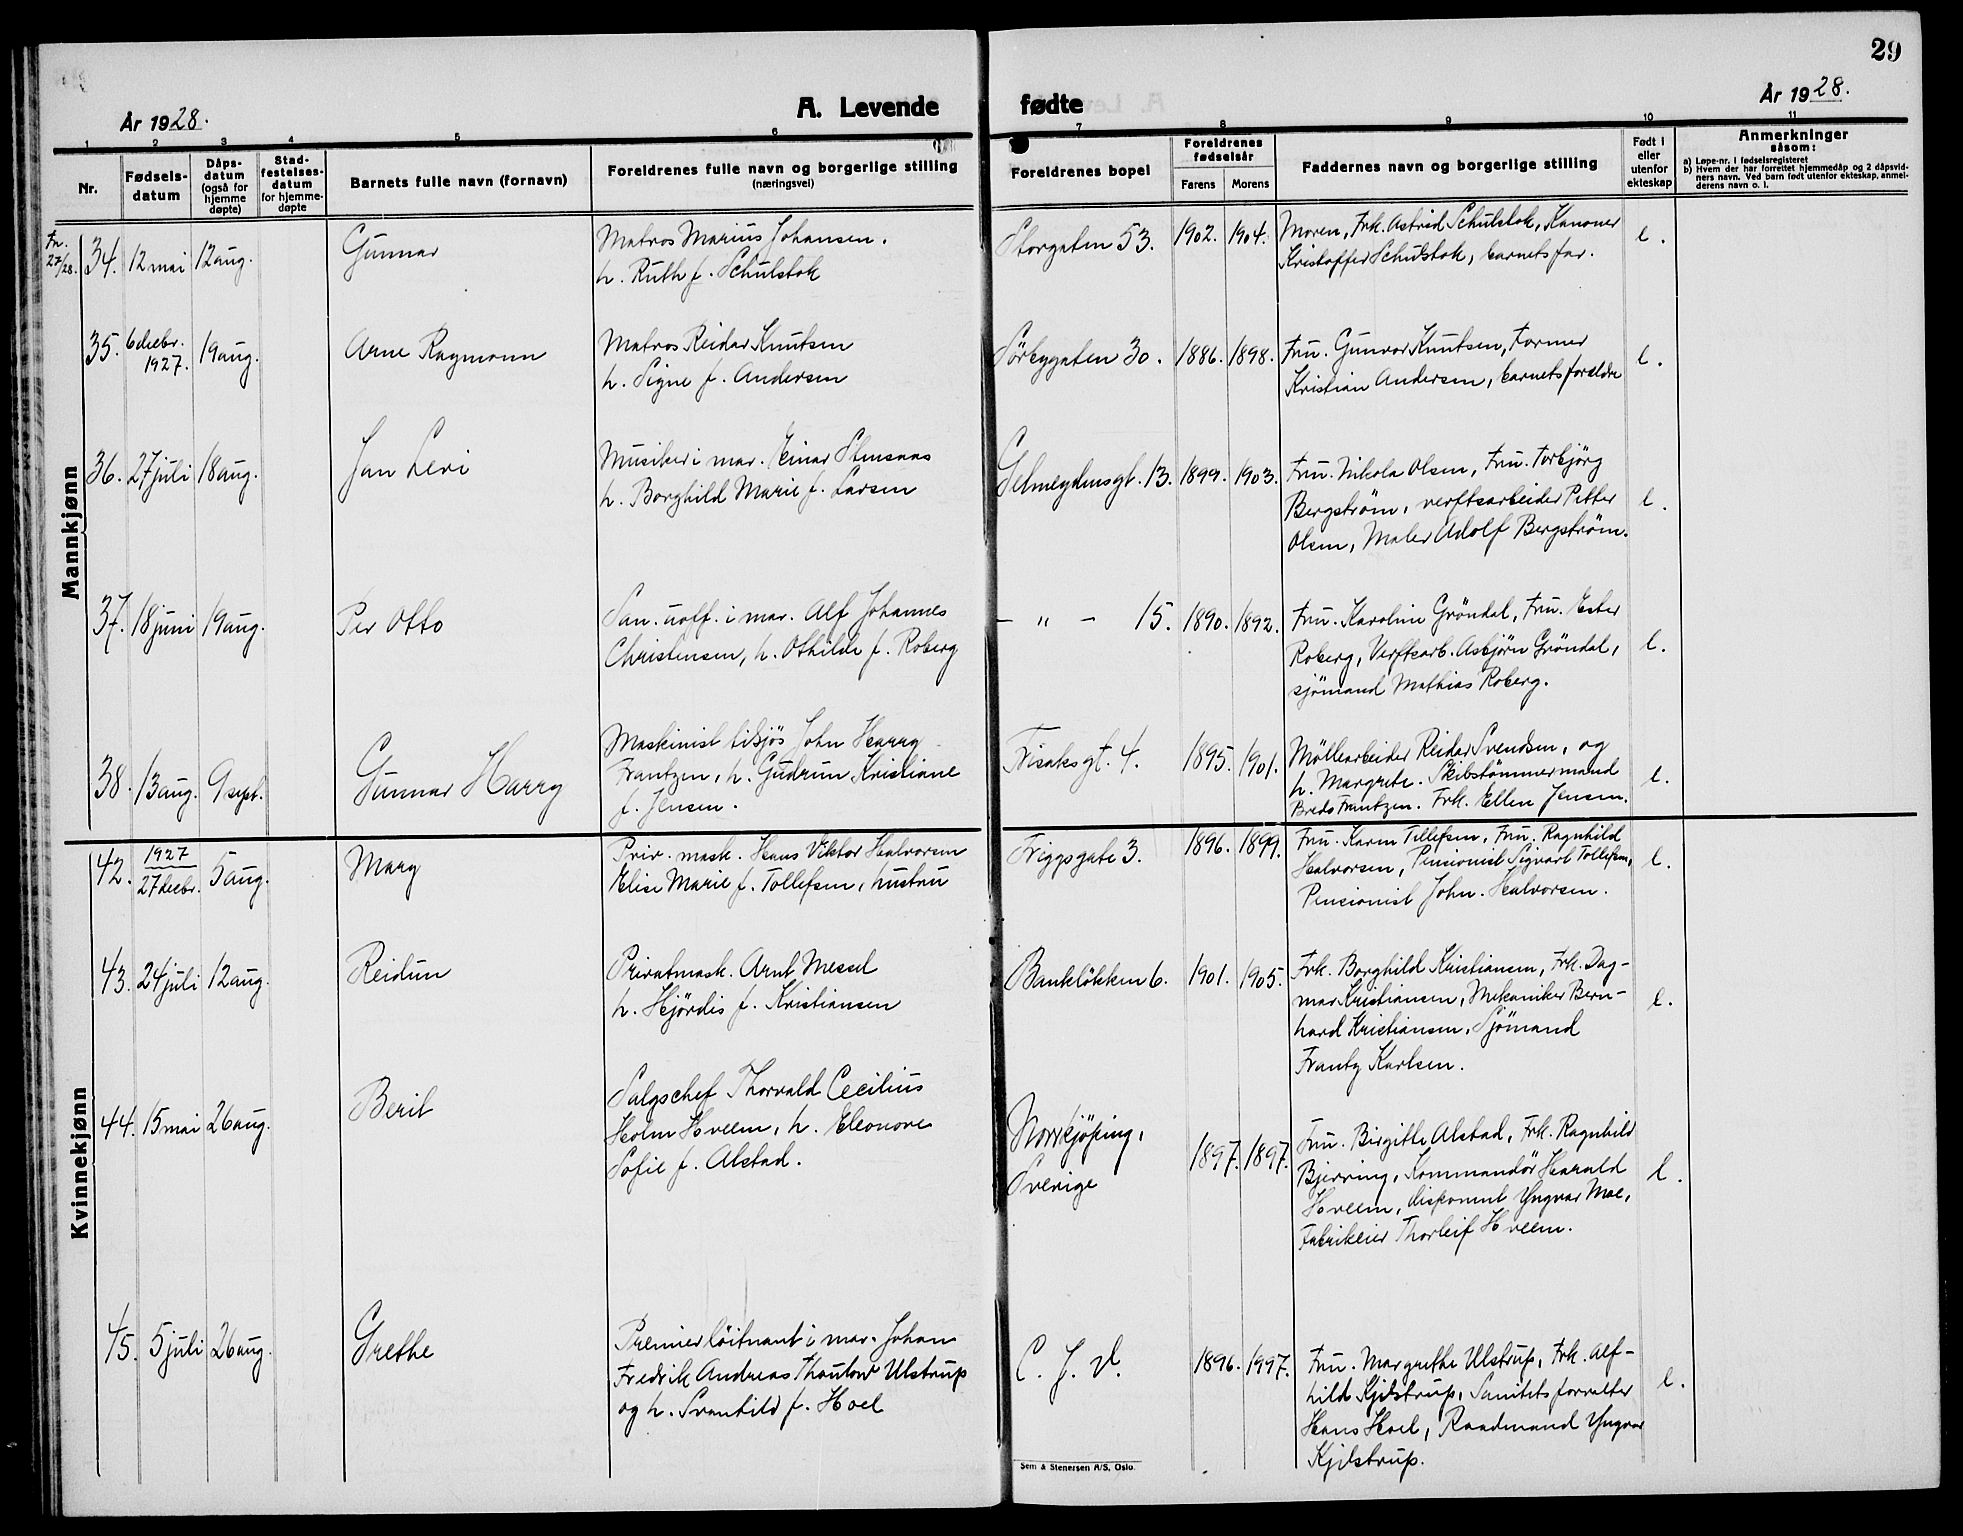 29
År 1928.
A. Levende fødte
År 1928.
1 2 3 4 5 6 7 8 9 10 11
Nr.
Fødsels-
datum
Dåps-
datum
(også for
hjemme
døpte)
Stad-
festelses-
datum
for hjemme-
døpte
Barnets fulle navn (fornavn)
Foreldrenes fulle navn og borgerlige stilling
(næringsvei)
Foreldrenes bopel
Foreldrenes
fødselsår
Farens Morens
Faddernes navn og borgerlige stilling
Født i
eller
utenfor
ekteskap
Anmerkninger
såsom:
a) Løpe-nr. i fødselsregisteret
b) Hvem der har forrettet hjemmedåp og 2 dåpsvid-
ners navn. Ved barn født utenfor ekteskap, anmel-
derens navn o. l.
Mannkjønn
Fr.
27/28.
34. 12 mai 12 aug.
Gunnar
Matros Marius Johansen.
h. Ruth f. Schulstok
Storgaten 53.
1902. 1904.
Moren, Frk. Astrid Schulstok, Kanoner
Kristoffer Schulstok, barnets far.
e.
35. 6 decbr.
1927. 19 aug.
Arne Ragmonn
Matros Reidar Knutsen
h. Signe f. Andersen
Sörbygaten 30.
1886. 1898.
Fru. Gunvor Knutsen, Former
Kristian Andersen, barnets forældre
e.
36. 27 juli 18 aug.
Jan Levi
Musiker i mar. Einar Stensaas
h. Borghild Marie f. Larsen
Gelmeydensgt. 13.
1899. 1903.
Fru. Nikola Olsen, Fru. Torbjörg
Bergström, verftsarbeider Petter
Olsen, Maler Adolf Bergström.
e.
37. 18 juni 19 aug.
Per Otto
San. uoff. i mar. Alf Johannes
Christensen, h. Othilde f. Roberg
- " - 15.
1890. 1892.
Fru. Karoline Gröndal, Fru. Ester
Roberg, Verftsarb. Asbjörn Gröndal,
sjömand Mathias Roberg.
e.
38. 13 aug. 9 sept.
Gunnar Harry
Maskinist tilsjös John Harry
Frantzen, h. Gudrun Kristiane
f. Jensen.
Trisaksgt. 4.
1895. 1901.
Möllearbeider Reidar Svendsen, og
h. Margrete. Skibstömmermand
Breds Frantzen. Frk. Ellen Jensen.
e.
Kvinnekjønn
42. 1927
27 decbr. 5 aug.
Mary
Priv. mask. Hans Viktor Halvorsen
Elise Marie f. Tollefsen, hustru
Friggsgate 3.
1896. 1899.
Fru. Karen Tollefsen, Fru. Ragnhild
Halvorsen, Pensionist Sigvart Tollefsen,
Pensionist John. Halvorsen.
e.
43. 24 juli 12 aug.
Reidun
Privatmask. Arnt Messel
h. Hjördis f. Kristiansen
Banklökken 6.
1901. 1905.
Frk. Borghild Kristiansen, Frk. Dag-
mar Kristiansen, Mekaniker Bern-
hard Kristiansen, Sjömand
Frantz Karlsen.
e.
44. 15 mai 26 aug.
Berit
Salgschef Thorvald Cecilius
Holm Hveem, h. Eleonore
Sofie f. Alstad.
Norrkjöping,
Sverige
1897. 1897.
Fru. Birgitte Alstad, Frk. Ragnhild
Bjerring, Kommandör Harald
Hveem, disponent Yngvar Moe,
Fabrikeier Thorleif Hveem.
e.
45. 5 juli 26 aug.
Grethe
Premierlöitnant i mar. Johan
Fredrik Andreas Thaulow Ulstrup
og h. Svanhild f. Hoel
C. J. V.
1896. 1997.
Fru. Margrethe Ulstrup, Frk. Alf-
hild Kjilstrup, Sanitetsforvalter
Hans Hoel, Raadmand Yngvar
Kjilstrup.
e.
Sem & Stenersen A/S, Oslo.